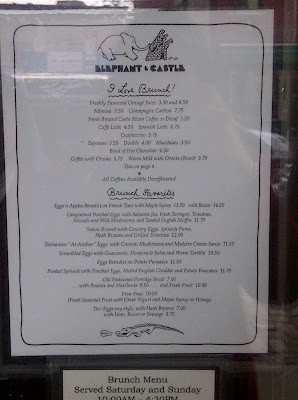 ELEPHANT & CASTLE
I Love Brunch!
Freshly Squeezed Orange Juice 3.00 and 4.50
Mimosa 7.50 Champagne Cocktail 7.75
Fresh Brewed Costa Rican Coffee or Decaf 3.25
Caffe Latte 4.50 Spanish Latte 4.75
Cappuccino 3.75
Espresso 3.25 Double 4.00 Macchiato 3.50
Bowl of Hot Chocolate 4.50
Coffee with Orzata 3.75 Warm Milk with Orzata (Bowl) 3.75
Teas on page 4
All Coffees Available Decaffeinated
Brunch Favorites
Eggs n Apples Benedict on French Toast with Maple Syrup 13.50 with Bacon 14.50
Caramelized Poached Eggs with Salsa, Fresh Tarragon, Tomatoes,
Avocado and Wild Mushrooms, and Toasted English Muffin 12.75
Yukon Brunch with Country Eggs, Spinach Puree,
Hash Browns and Grilled Tomatoes 12.00
Eggs, with Cremini Mushrooms and Madeira Cream Sauce 11.50
Scrambled Eggs with Guacamole, Homemade Salsa and Warm Tortilla 10.50
Eggs Benedict on Potato Pancakes 12.50
Sauteed Spinach with Poached Eggs, Melted English Cheddar and Potato Pancakes 11.75
Old Fashioned Porridge Bowl 7.00
with Banana and Hazelnuts 8.50 ... and Fresh Fruit 10.00
Frou-Frou 10.00
(Fresh Seasonal Fruit with Greek Yogurt and Maple Syrup or Honey)
Two Eggs any style, with Hash Browns 7.00
with Ham, Bacon or Sausage 8.75
Brunch Menu
Served Saturday and Sunday
10:00AM - 4:30PM